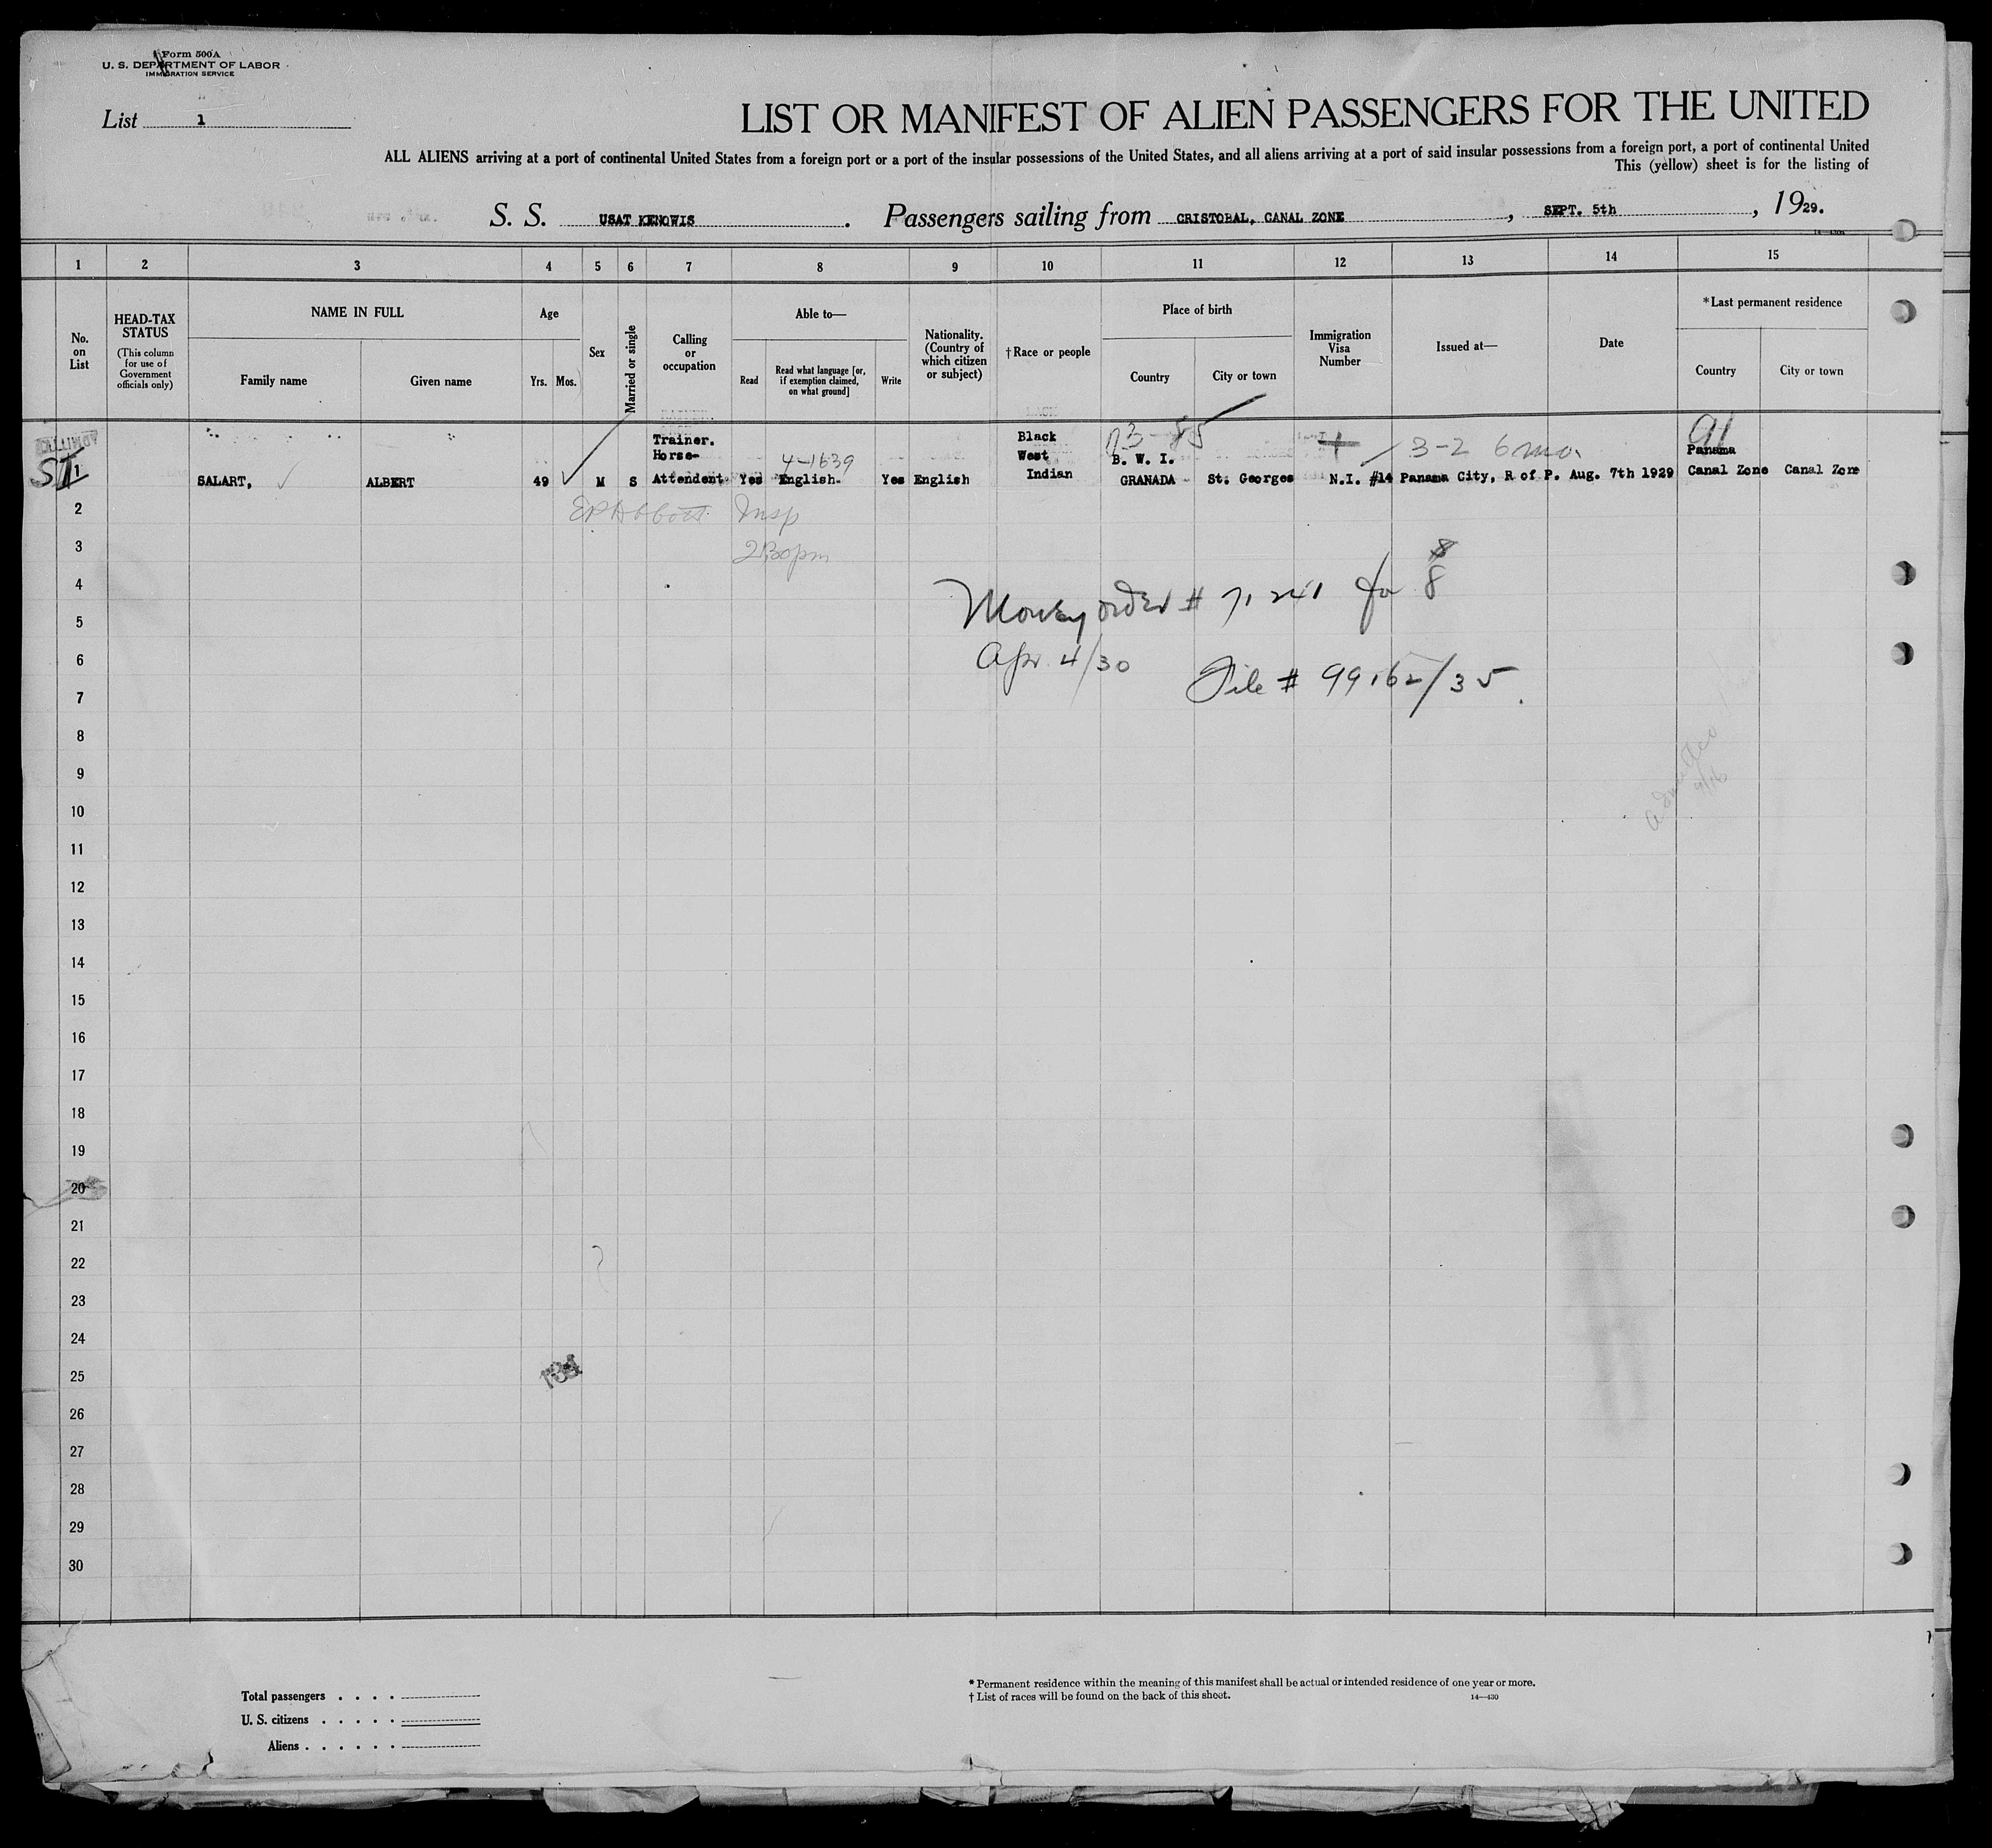 Form 500A
U. S. DEPARTMENT OF LABOR
IMMIGRATION SERVICE
List 1
LIST OR MANIFEST OF ALIEN PASSENGERS FOR THE UNITED
ALL ALIENS arriving at a port of continental United States from a foreign port or a port of the insular possessions of the United States, and all aliens arriving at a port of said insular possessions from a foreign port, a port of continental United
This (yellow) sheet is for the listing of
S. S. USAT KENOWIS. Passengers sailing from CRISTOBAL, CANAL ZONE, SEPT. 5th, 1929.
1 2 3 4 5 6 7 8 9 10 11 12 13 14 15
No. on List
HEAD-TAX STATUS
(This column for use of Government officials only)
NAME IN FULL
Family name
Given name
Age
Yrs. Mos.
Sex
Married or single
Calling or occupation
Able to—
Read
Read what language [or, if exemption claimed, on what ground]
Write
Nationality. (Country of which citizen or subject)
† Race or people
Place of birth
Country
City or town
Immigration Visa Number
Issued at—
Date
*Last permanent residence
Country
City or town
ADMITTED
Trainer. Black 91
Horse- 4-1639 West B. W. I. 3-2 6 mo. Panama
ST 1 SALART, ALBERT 49 M S Attendent Yes English. Yes English Indian GRANADA St. Georges N.I. #14 Panama City, R of P. Aug. 7th 1929 Canal Zone Canal Zone
2 EP Abbott Insp
3 2:30pm
4 Money order # 71241 for 8
5
6 Apr 4/30
7 File # 99162/35.
8
9
10
11
12
13
14
15
16
17
18
19
20
21
22
23
24
25
26
27
28
29
30
Total passengers . . . .
U. S. citizens . . . . .
Aliens . . . . . .
* Permanent residence within the meaning of this manifest shall be actual or intended residence of one year or more.
† List of races will be found on the back of this sheet. 14—430